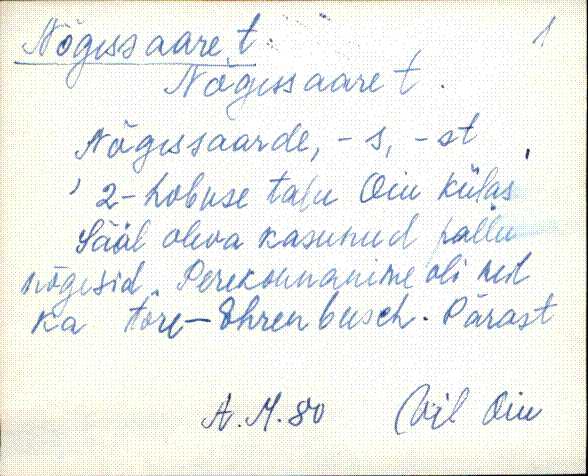 Nõgessaare t. 1
Nõgessaare t.
Nõgessaarde, -s, -st
' 2-hobuse talu Oiu külas'
Sääl oleva kasunud pallu
nõgesid. Perekonnanime oli neil
ka Tõre-Ehrenbusch. Pärast
A. M. 80 Vil Oiu